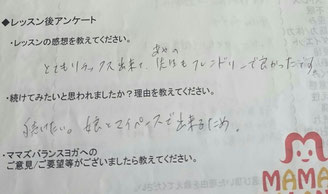 ◆レッスン後アンケート
・レッスンの感想を教えてください。
とてもリラックス出来て、先生もフレンドリーで良かったです
・続けてみたいと思われましたか？理由を教えてください。
続けたい。娘とマイペースで出来るため。
・ママズバランスヨガへの
ご意見/ご要望等がございましたら教えてください。
MAMA